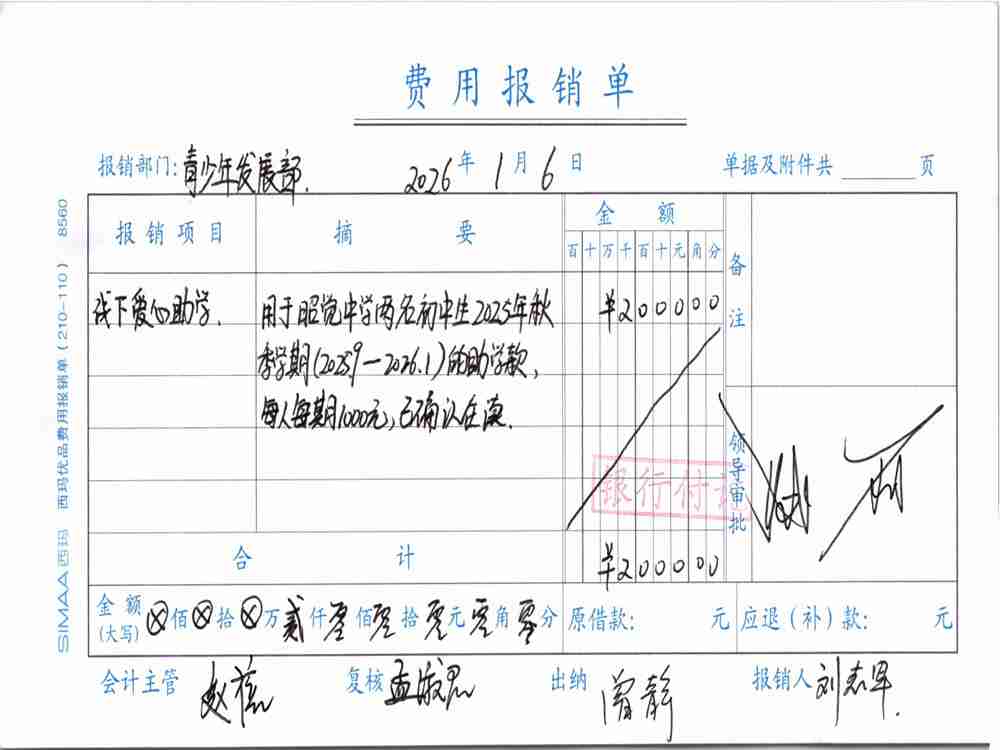 费用报销单
报销部门:青少年发展部. 2026年1月6日 单据及附件共 页
报销项目 摘要 金额 备注
百十万千百十元角分
线下爱心助学. 用于昭觉中学两名初中生2025年秋 ¥200000
季学期(2025.9-2026.1)的助学款,
每人每期1000元,已确认在读.
银行付讫
领导审批
合计 ¥200000
金额(大写) ⊗佰⊗拾⊗万贰仟零佰零拾零元零角零分 原借款: 元 应退(补)款: 元
会计主管 赵 复核 孟淑思 出纳 曾静 报销人 刘志军.
SIMAA西玛 西玛优品费用报销单(210-110) 8560